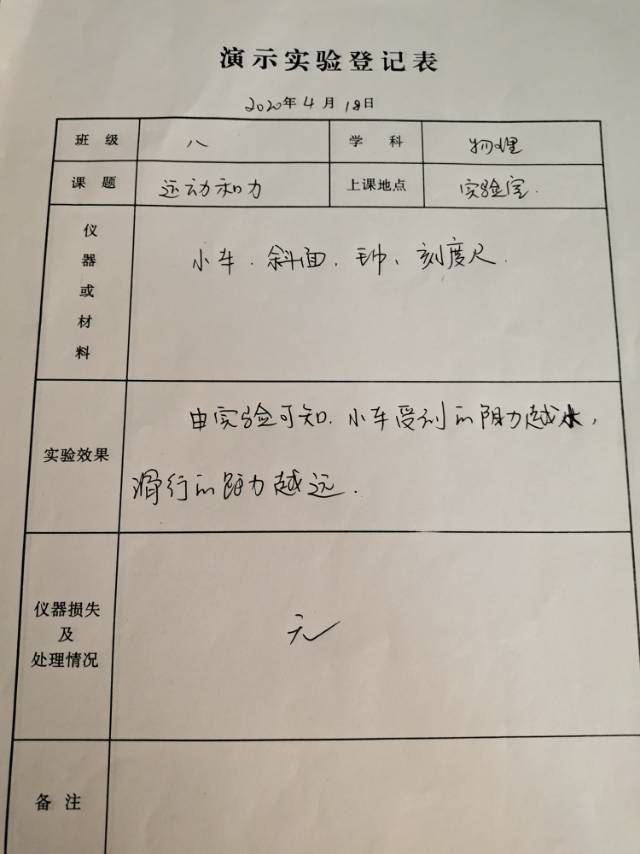 演示实验登记表
2020年4月18日
班级 八 学科 物理
课题 运动和力 上课地点 实验室.
仪器或材料 小车.斜面.毛巾、刻度尺.
实验效果 由实验可知.小车受到的阻力越小,
滑行的距离越远.
仪器损失及处理情况 无
备注